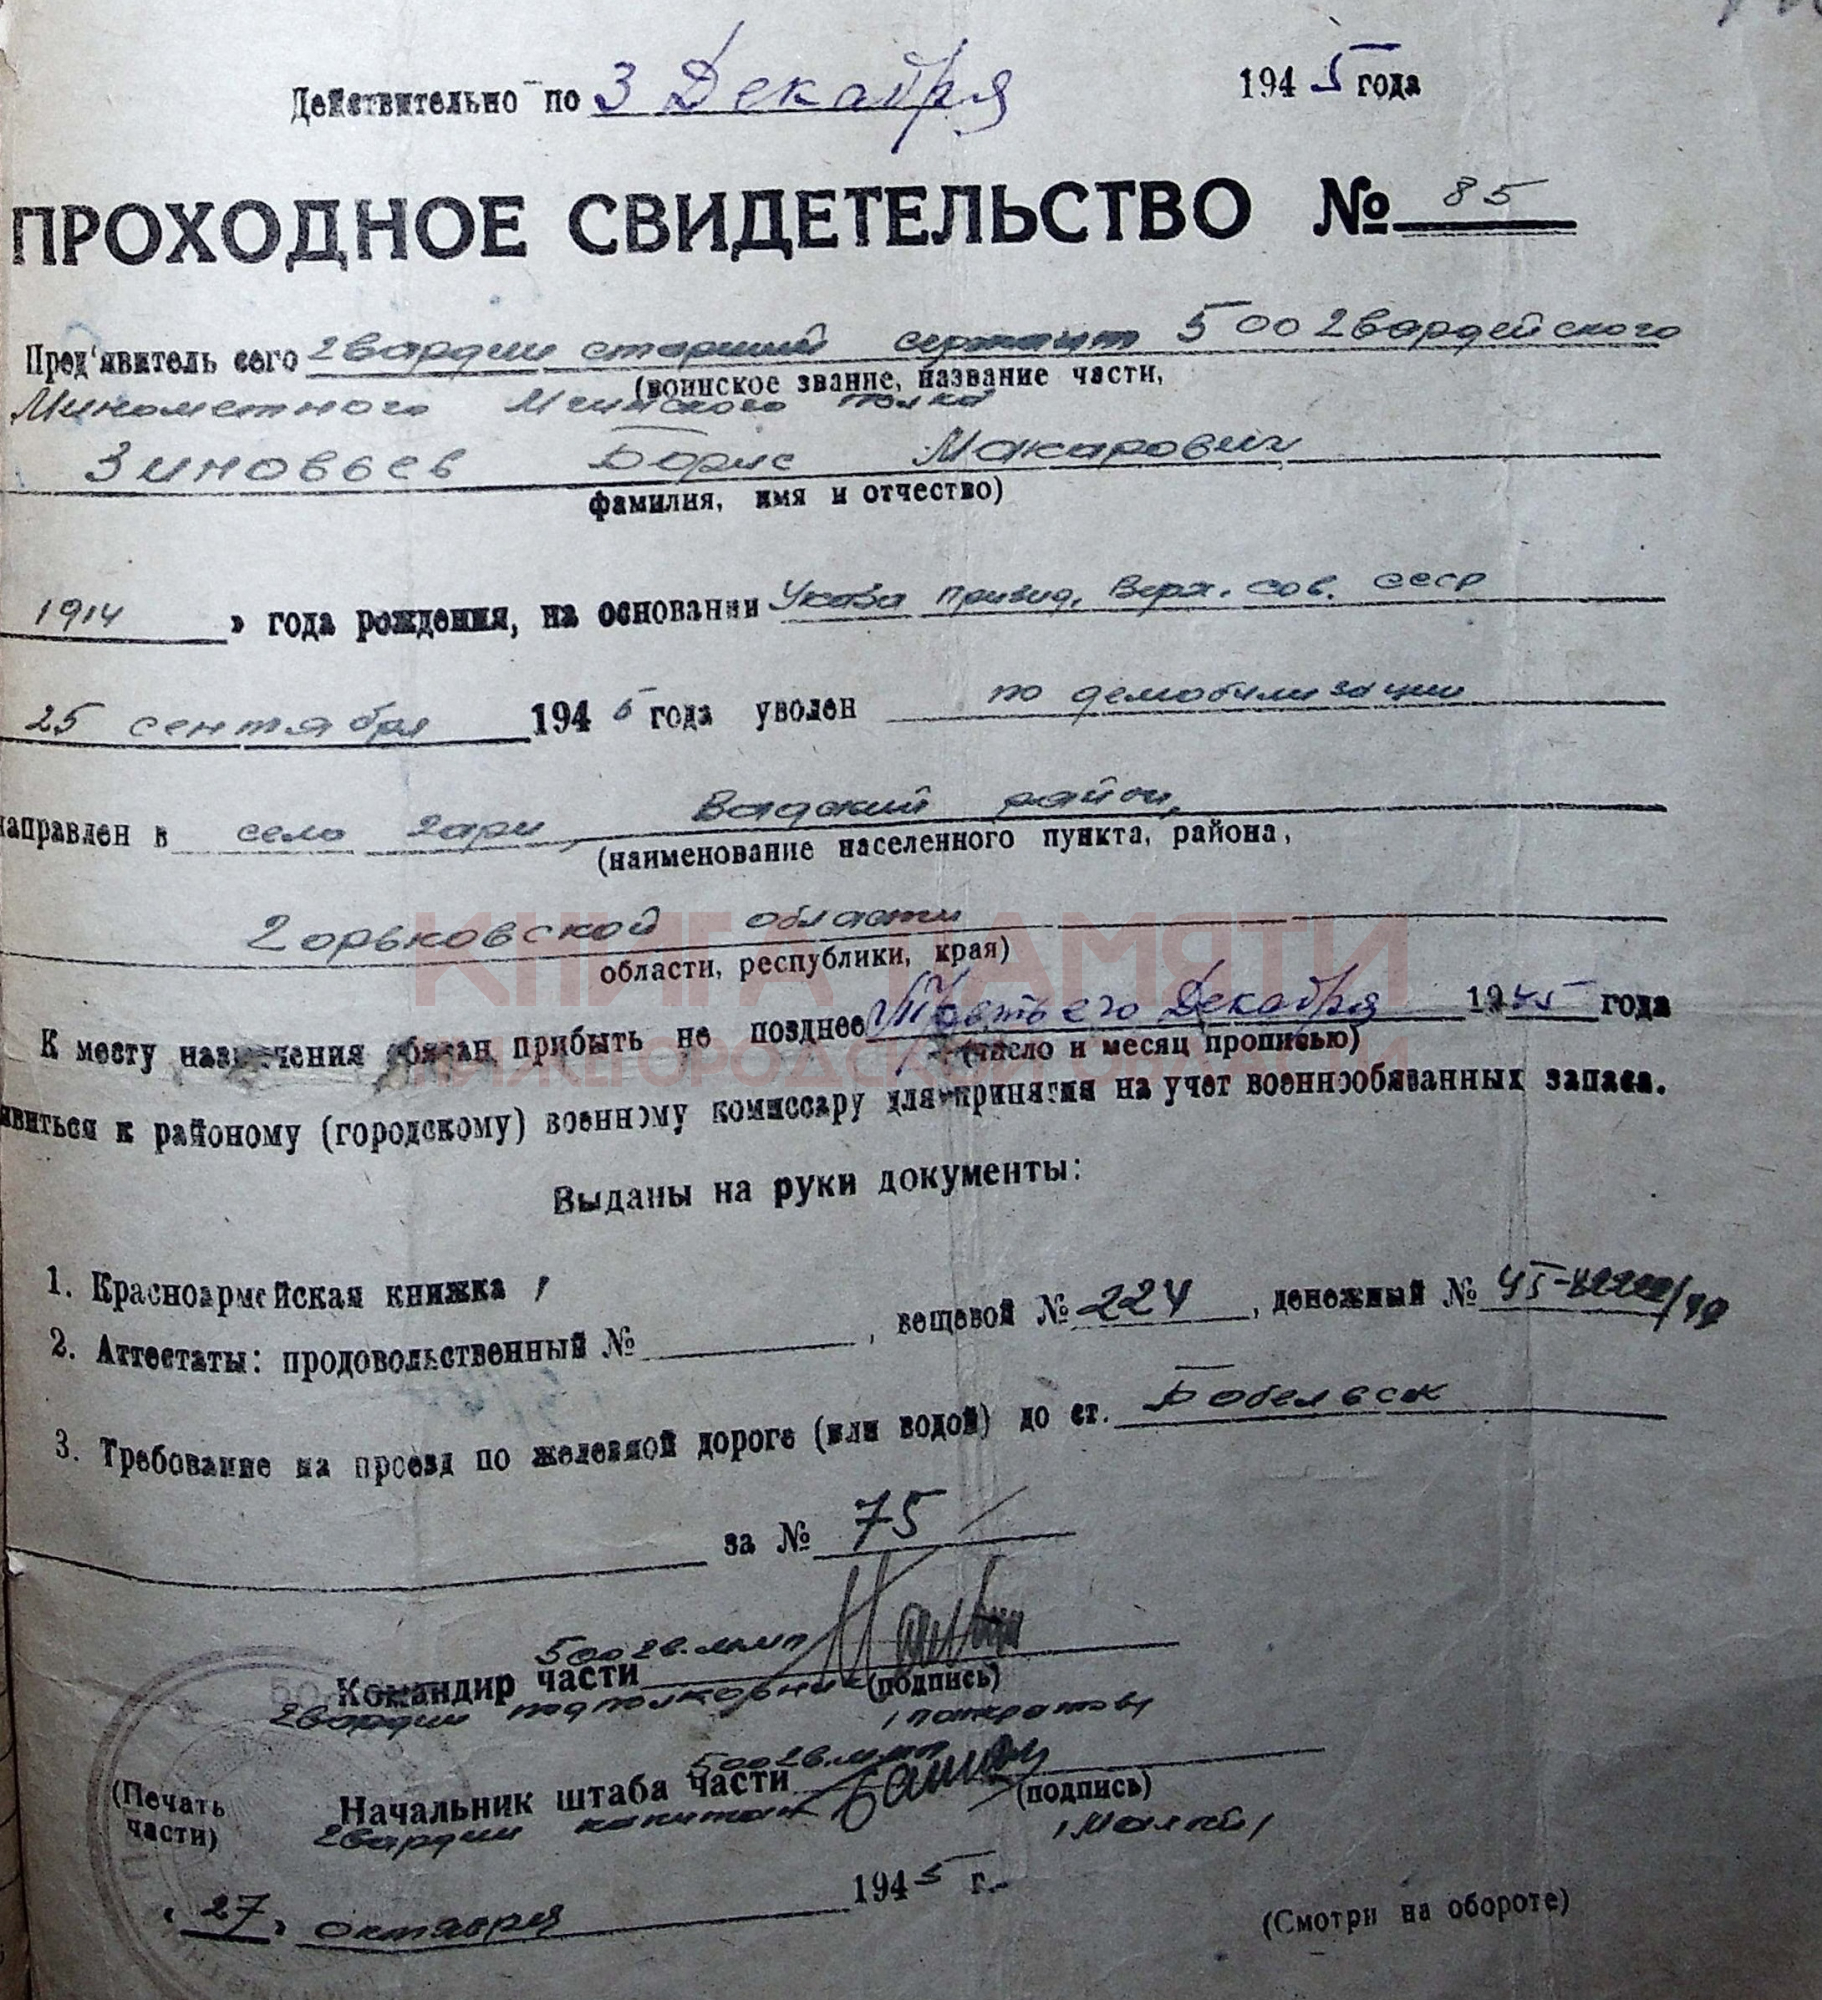 Действительно по 3 Декабря 1945 года
ПРОХОДНОЕ СВИДЕТЕЛЬСТВО № 85
Пред'явитель сего гвардии старший сержант 500 гвардейского
(воинское звание, название части,
Минометного Мгинского полка
Зиновьев Борис Макарович
фамилия, имя и отчество)
1914 » года рождения, на основании Указа Призид. Верх. Сов. СССР
25 сентября 1945 года уволен по демобилизации
направлен в село Гари, Вадский район,
(наименование населенного пункта, района,
Горьковской области
области, республики, края)
КНИГА ПАМЯТИ
НИЖЕГОРОДСКОЙ ОБЛАСТИ
К месту назначения обязан прибыть не позднее Третьего Декабря 1945 года
(число и месяц прописью)
явиться к районому (городскому) военному комиссару для принятия на учет военнообязанных запаса.
Выданы на руки документы:
1. Красноармейская книжка,
2. Аттестаты: продовольственный № , вещевой № 224, денежный №
3. Требование на проезд по железной дороге (или водой) до ст. Бобельск
за № 75
500 гв. ммп
Командир части (подпись)
гвардии подполковник /Панкратов/
500 гв. ммп
Начальник штаба части (подпись)
гвардии капитан
(Печать
части)
« 27 » октября 1945 г.
(Смотри на обороте)